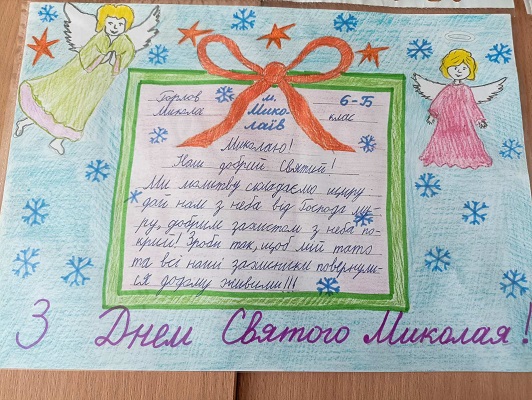 Горлов м. 6-Б
Микола Мико- клас
лаїв
Миколаю!
Наш добрий Святий!
Ми молитву складаємо щиру:
дай нам з неба від Господа ми-
ру, добрим захистом з неба по-
крий! Зроби так, щоб мій тато
та всі наші захисники повернули-
ся додому живими!!!
З Днем Святого Миколая!